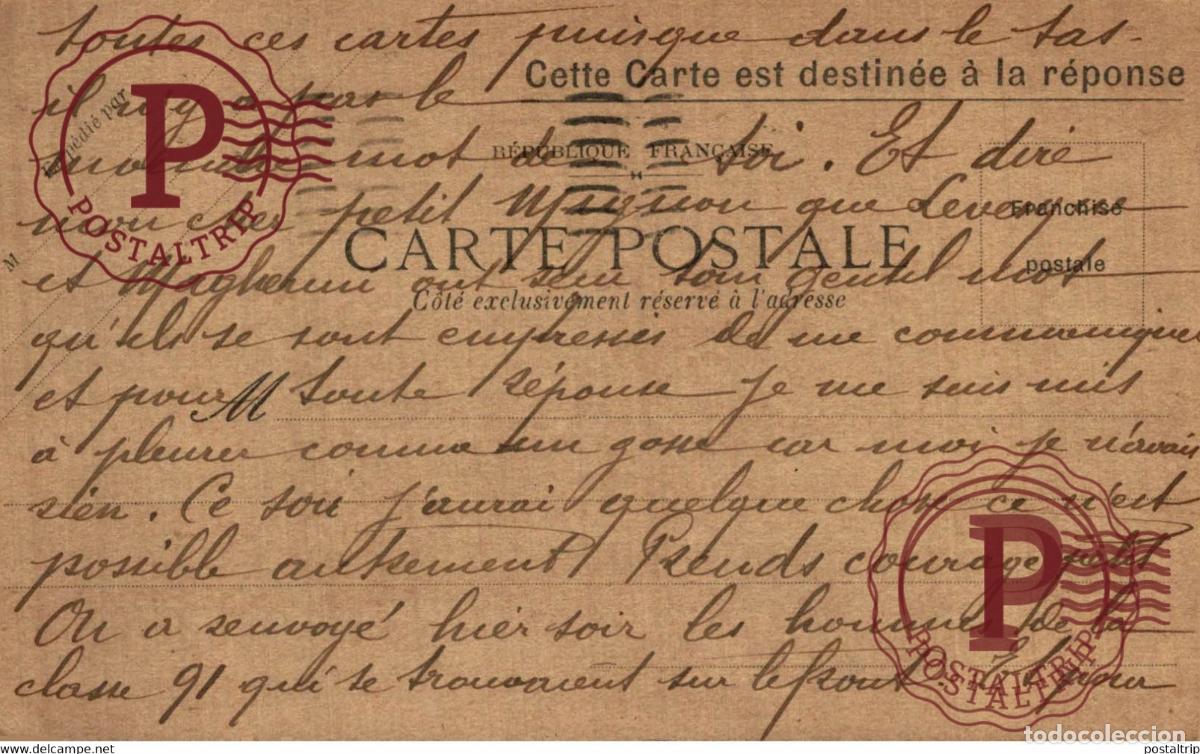 toutes ces cartes puisque dans le tas
Cette Carte est destinée à la réponse
il n'y a pas le
Expédié par
moindre mot de toi. Et dire
RÉPUBLIQUE FRANÇAISE
mon cher petit Mignon que
Franchise
postale
CARTE POSTALE
M
et ont un gentil mot
Côté exclusivement réservé à l'adresse
qu'ils se sont empressés de me communiquer
et pour toute réponse je me suis mis
M
à pleurer comme un gosse car moi je n'avais
rien. Ce soir j'aurai quelque chose ce n'est
possible autrement Prends courage petit
On a renvoyé hier soir les hommes de la
classe 91 qui se trouvaient sur le front
P
POSTALTRIP
P
POSTALTRIP
POSTALTRIP
todocoleccion
www.todocoleccion.net
postaltrip